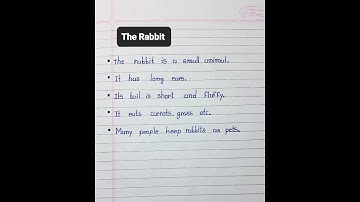 The Rabbit
The rabbit is a small animal.
It has long ears.
Its tail is short and fluffy.
It eats carrots, grass etc.
Many people keep rabbits as pets.